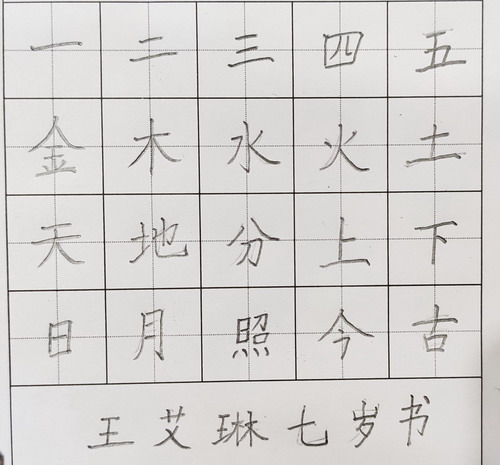 一二三四五
金木水火土
天地分上下
日月照今古
王艾琳七岁书